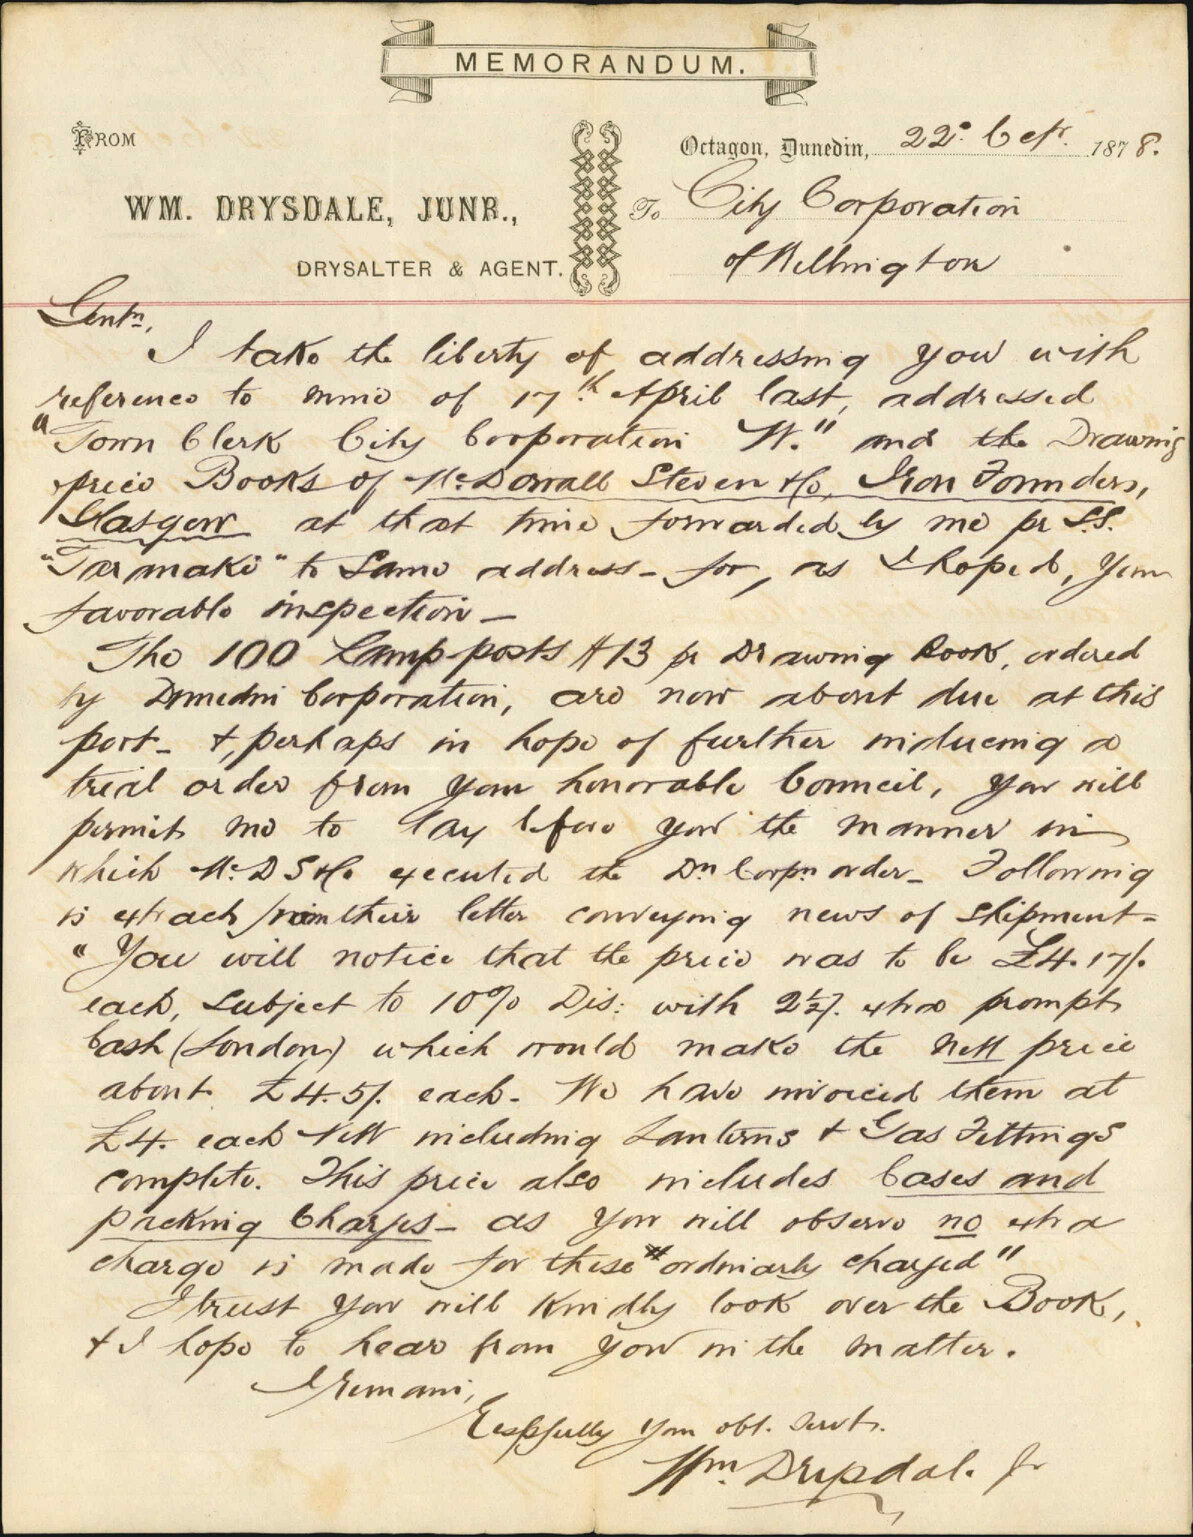 MEMORANDUM.
FROM
Octagon, Dunedin, 22d. 1878.
WM. DRYSDALE, JUNR.,
To City Corporation
DRYSALTER & AGENT.
of Wellington
Gentn,
I take the liberty of addressing you with
reference to mine of 17th April last, addressed
"Town Clerk City Corporation W." and the Drawing
price Books of McDowall Steven & Co, Iron Founders,
Glasgow at that time forwarded by me pr S.S.
"Taranaki" to same address - for, as I hoped, your
favorable inspection -
The 100 Lamp-posts #13 pr Drawing Book, ordered
by Dunedin Corporation, are now about due at this
port - & perhaps in hope of further inducing a
trial order from your honorable Council, you will
permit me to lay before you the manner in
which Mc.D S & Co. executed the Dn Corpn order - Following
is extract from their letter conveying news of shipment -
"You will notice that the price was to be £4.17/.
each, subject to 10% Dis: with 2½/. extra prompt
Cash (London) which would make the nett price
about £4.5/. each. We have invoiced them at
£4. each Nett including Lanterns & Gas Fittings
complete. This price also includes Cases and
packing Charges - as you will observe no extra
charge is made for these "ordinarily charged"
I trust you will kindly look over the Book,
& I hope to hear from you in the matter.
I remain,
Respfully your obt. servt.
Wm Drysdale. Jr